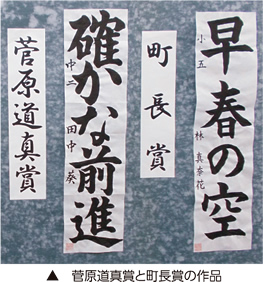 早春の空
小五 林 真奈花
町長賞
確かな前進
中二 田中 葵
菅原道真賞
▲ 菅原道真賞と町長賞の作品